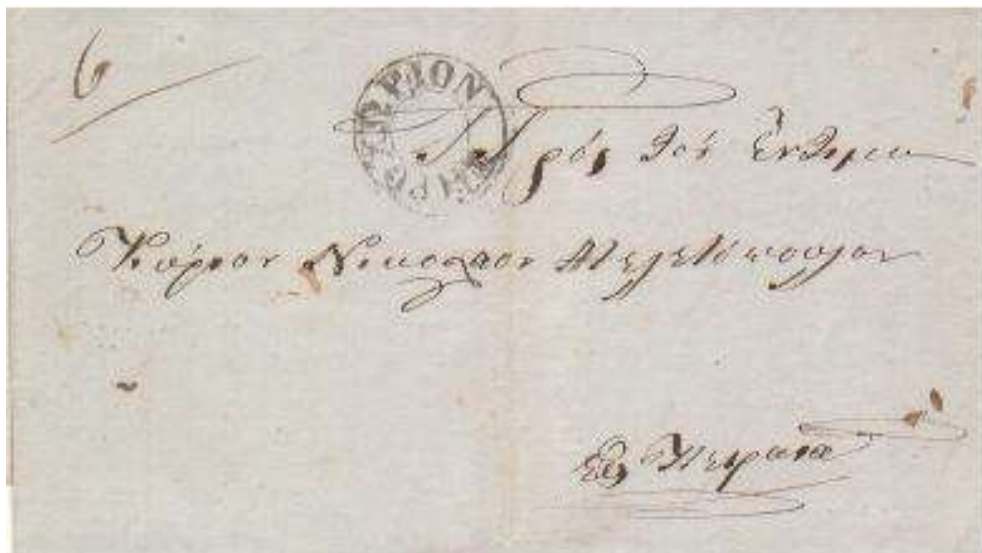 6
Πρός τὸν ἔντιμον
Κύριον Νικόλαον Μελετόπουλον
Εἰς Πειραιᾶ